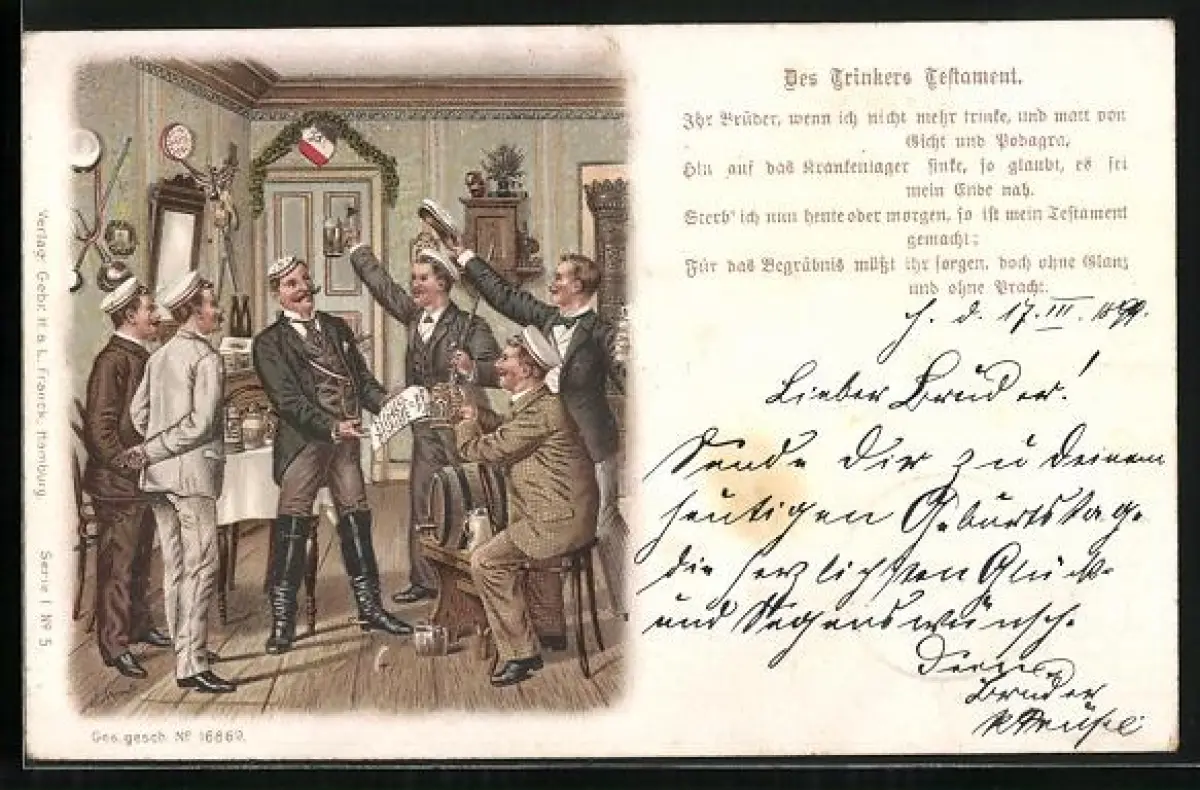 Des Trinkers Testament.
Ihr Brüder, wenn ich nicht mehr trinke, und matt von
Gicht und Podagra,
Hin auf das Krankenlager sinke, so glaubt, es sei
mein Ende nah.
Sterb' ich nun heute oder morgen, so ist mein Testament
gemacht;
Für das Begräbnis müßt ihr sorgen, doch ohne Glanz
und ohne Pracht.
d. 17. III. 1899.
Lieber Bruder!
Sende Dir zu Deinem
heutigen Geburtstage
die herzlichsten Glück-
und Segenswünsche
Dein
Bruder
Verlag: Gebr. H. & L. Franck, Hamburg. Serie I Nº 5
Ges. gesch. Nº 16869.